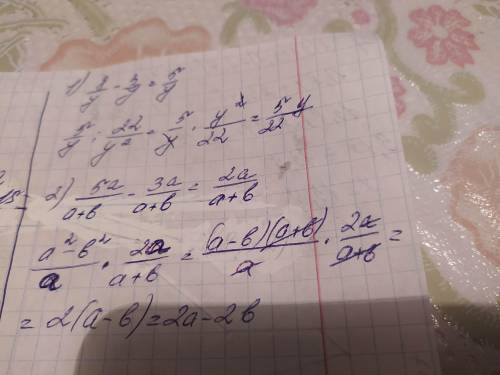 1) 8/y - 3/y = 5/y
5/y : 22/y² = 5/y · y²/22 = 5y/22
2) 5a/(a+b) - 3a/(a+b) = 2a/(a+b)
(a²-b²)/a · 2a/(a+b) = (a-b)(a+b)/a · 2a/(a+b) =
= 2(a-b) = 2a-2b